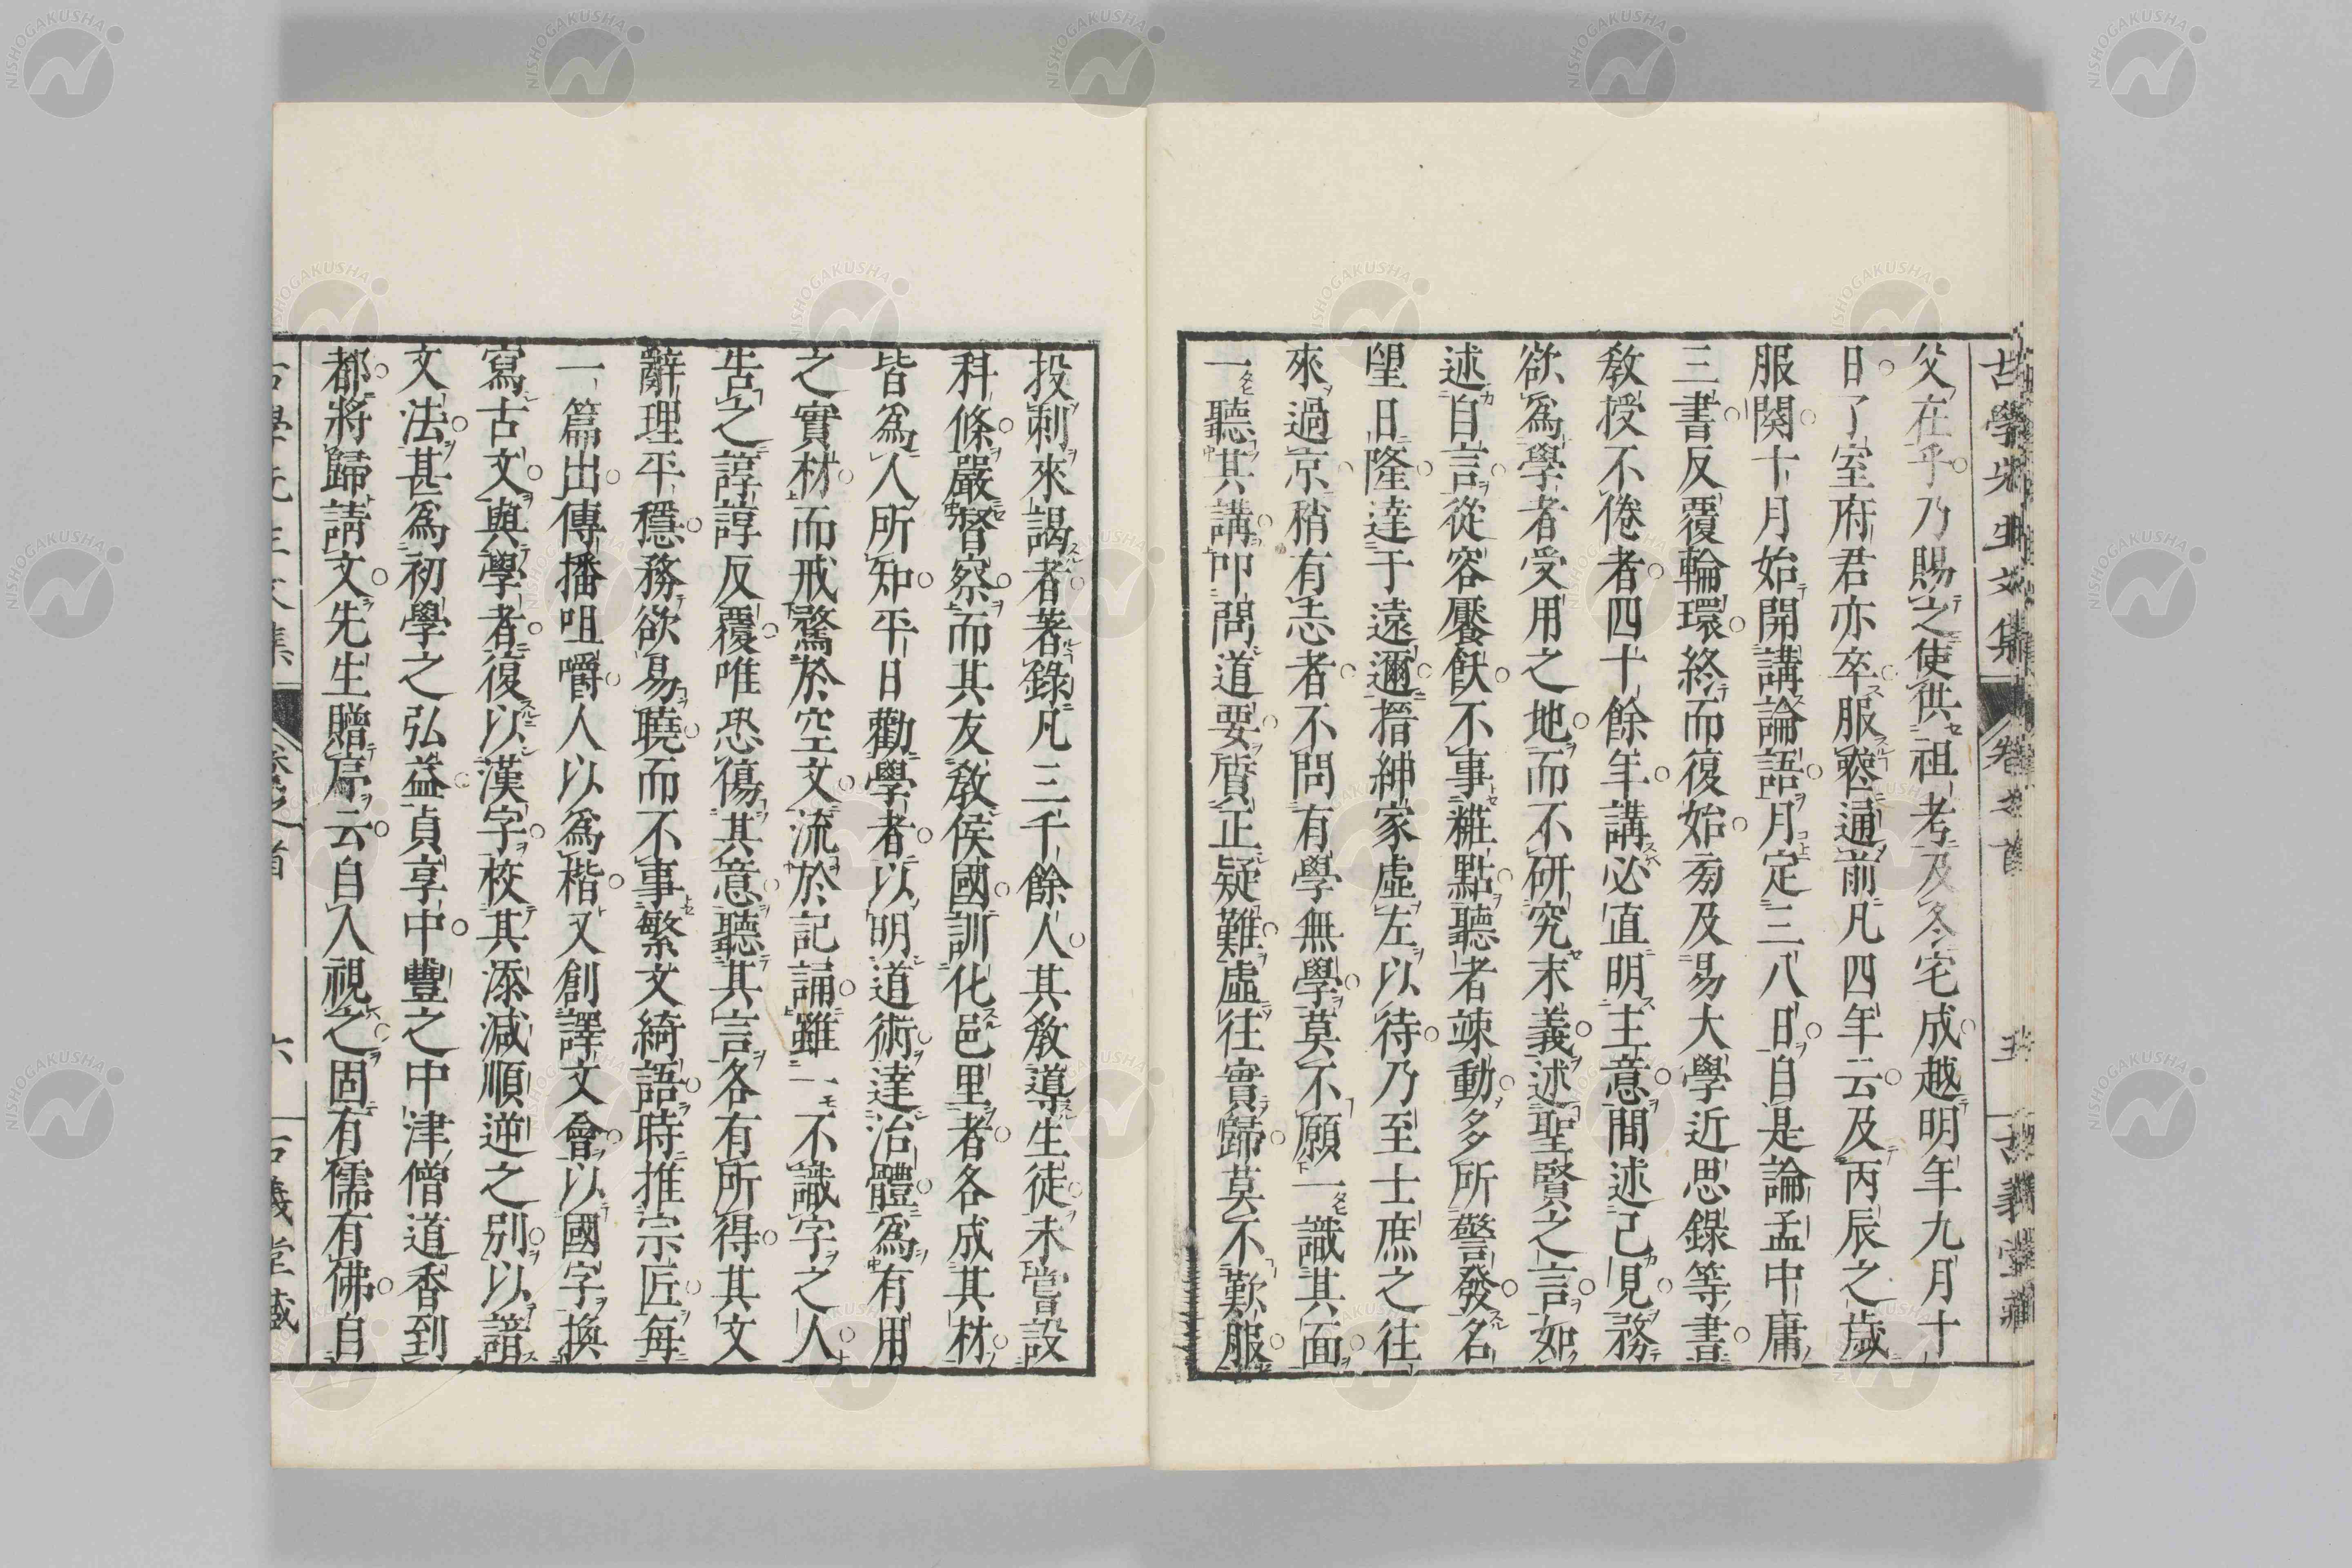 古學先生文集 卷之首 五 古義堂藏
父在乎乃賜之使供祖考及冬宅成越明年九月十
日了室府君亦卒服喪通前凡四年云及丙辰之歲
服闋十月始開講論語月定三八日自是論孟中庸
三書反覆輪環終而復始旁及易大學近思錄等書
教授不倦者四十餘年講必直明主意間述己見務
欲爲學者受用之地而不研究末義述聖賢之言如
述自言從容饜飫不事糚點聽者竦動多所警發名
望日隆達于遠邇搢紳家虛左以待乃至士庶之往
來過京稍有志者不問有學無學莫不願一識其面
一聽其講叩問道要質正疑難虛往實歸莫不歎服
投刺來謁者著錄凡三千餘人其教導生徒未嘗設
科條嚴督察而其友教侯國訓化邑里者各成其材
皆爲人所知平日勸學者以明道術達治體爲有用
之實材而戒騖於空文流於記誦雖一不識字之人
告之諄諄反覆唯恐傷其意聽其言各有所得其文
辭理平穩務欲易曉而不事繁文綺語時推宗匠每
一篇出傳播咀嚼人以爲楷又創譯文會以國字換
寫古文與學者復以漢字校其添減順逆之別以諳
文法甚爲初學之弘益貞享中豐之中津僧道香到
都將歸請文先生贈序云自人視之固有儒有佛自
古學先生文集 卷之首 六 古義堂藏